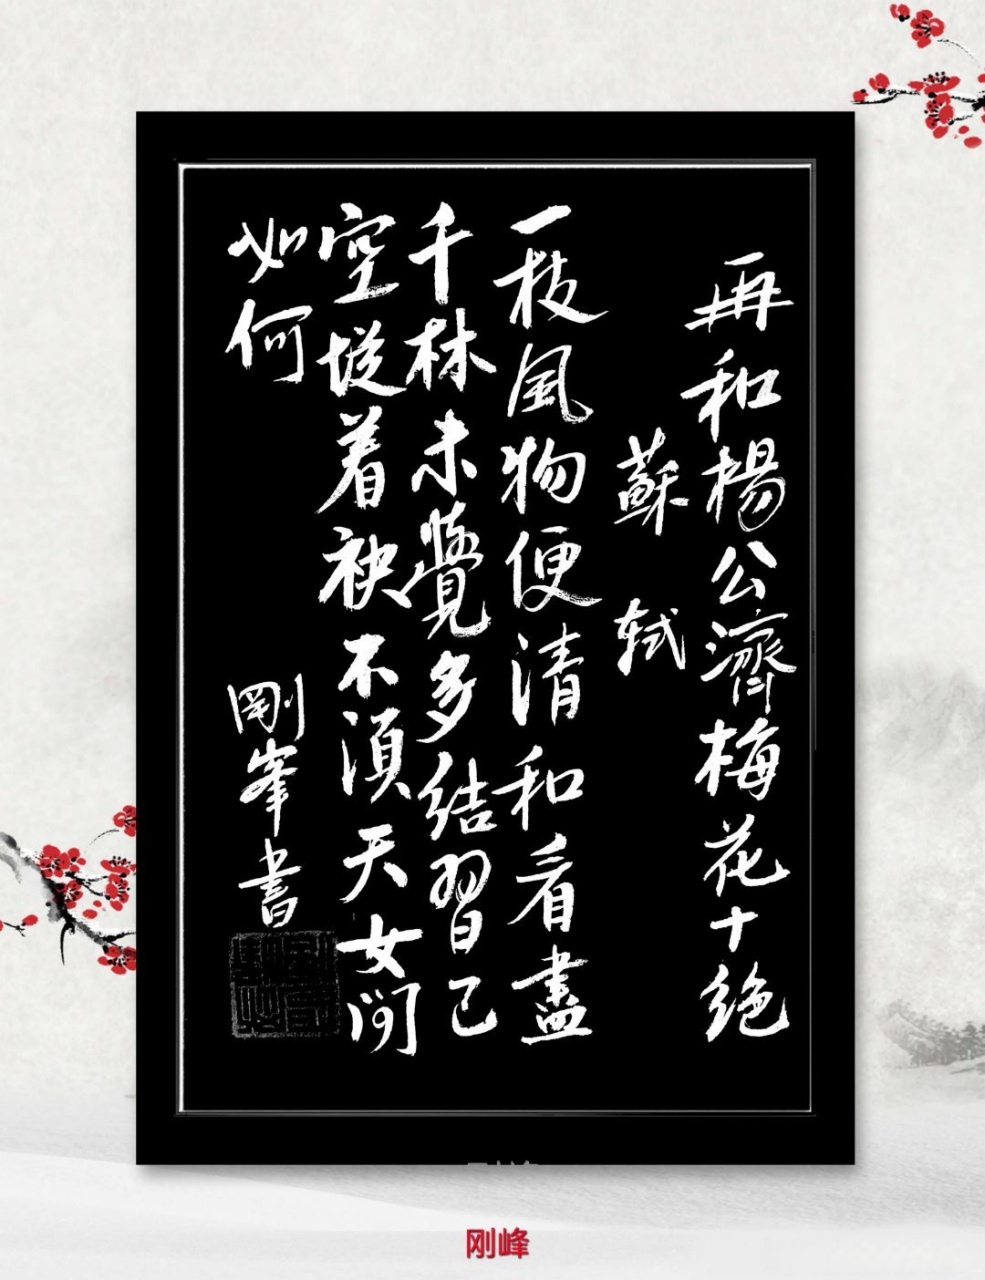 再和楊公濟梅花十絶
蘇軾
一枝風物便清和看盡
千林未覺多結習已
空從着袂不須天女問
如何
剛峯書
刚峰